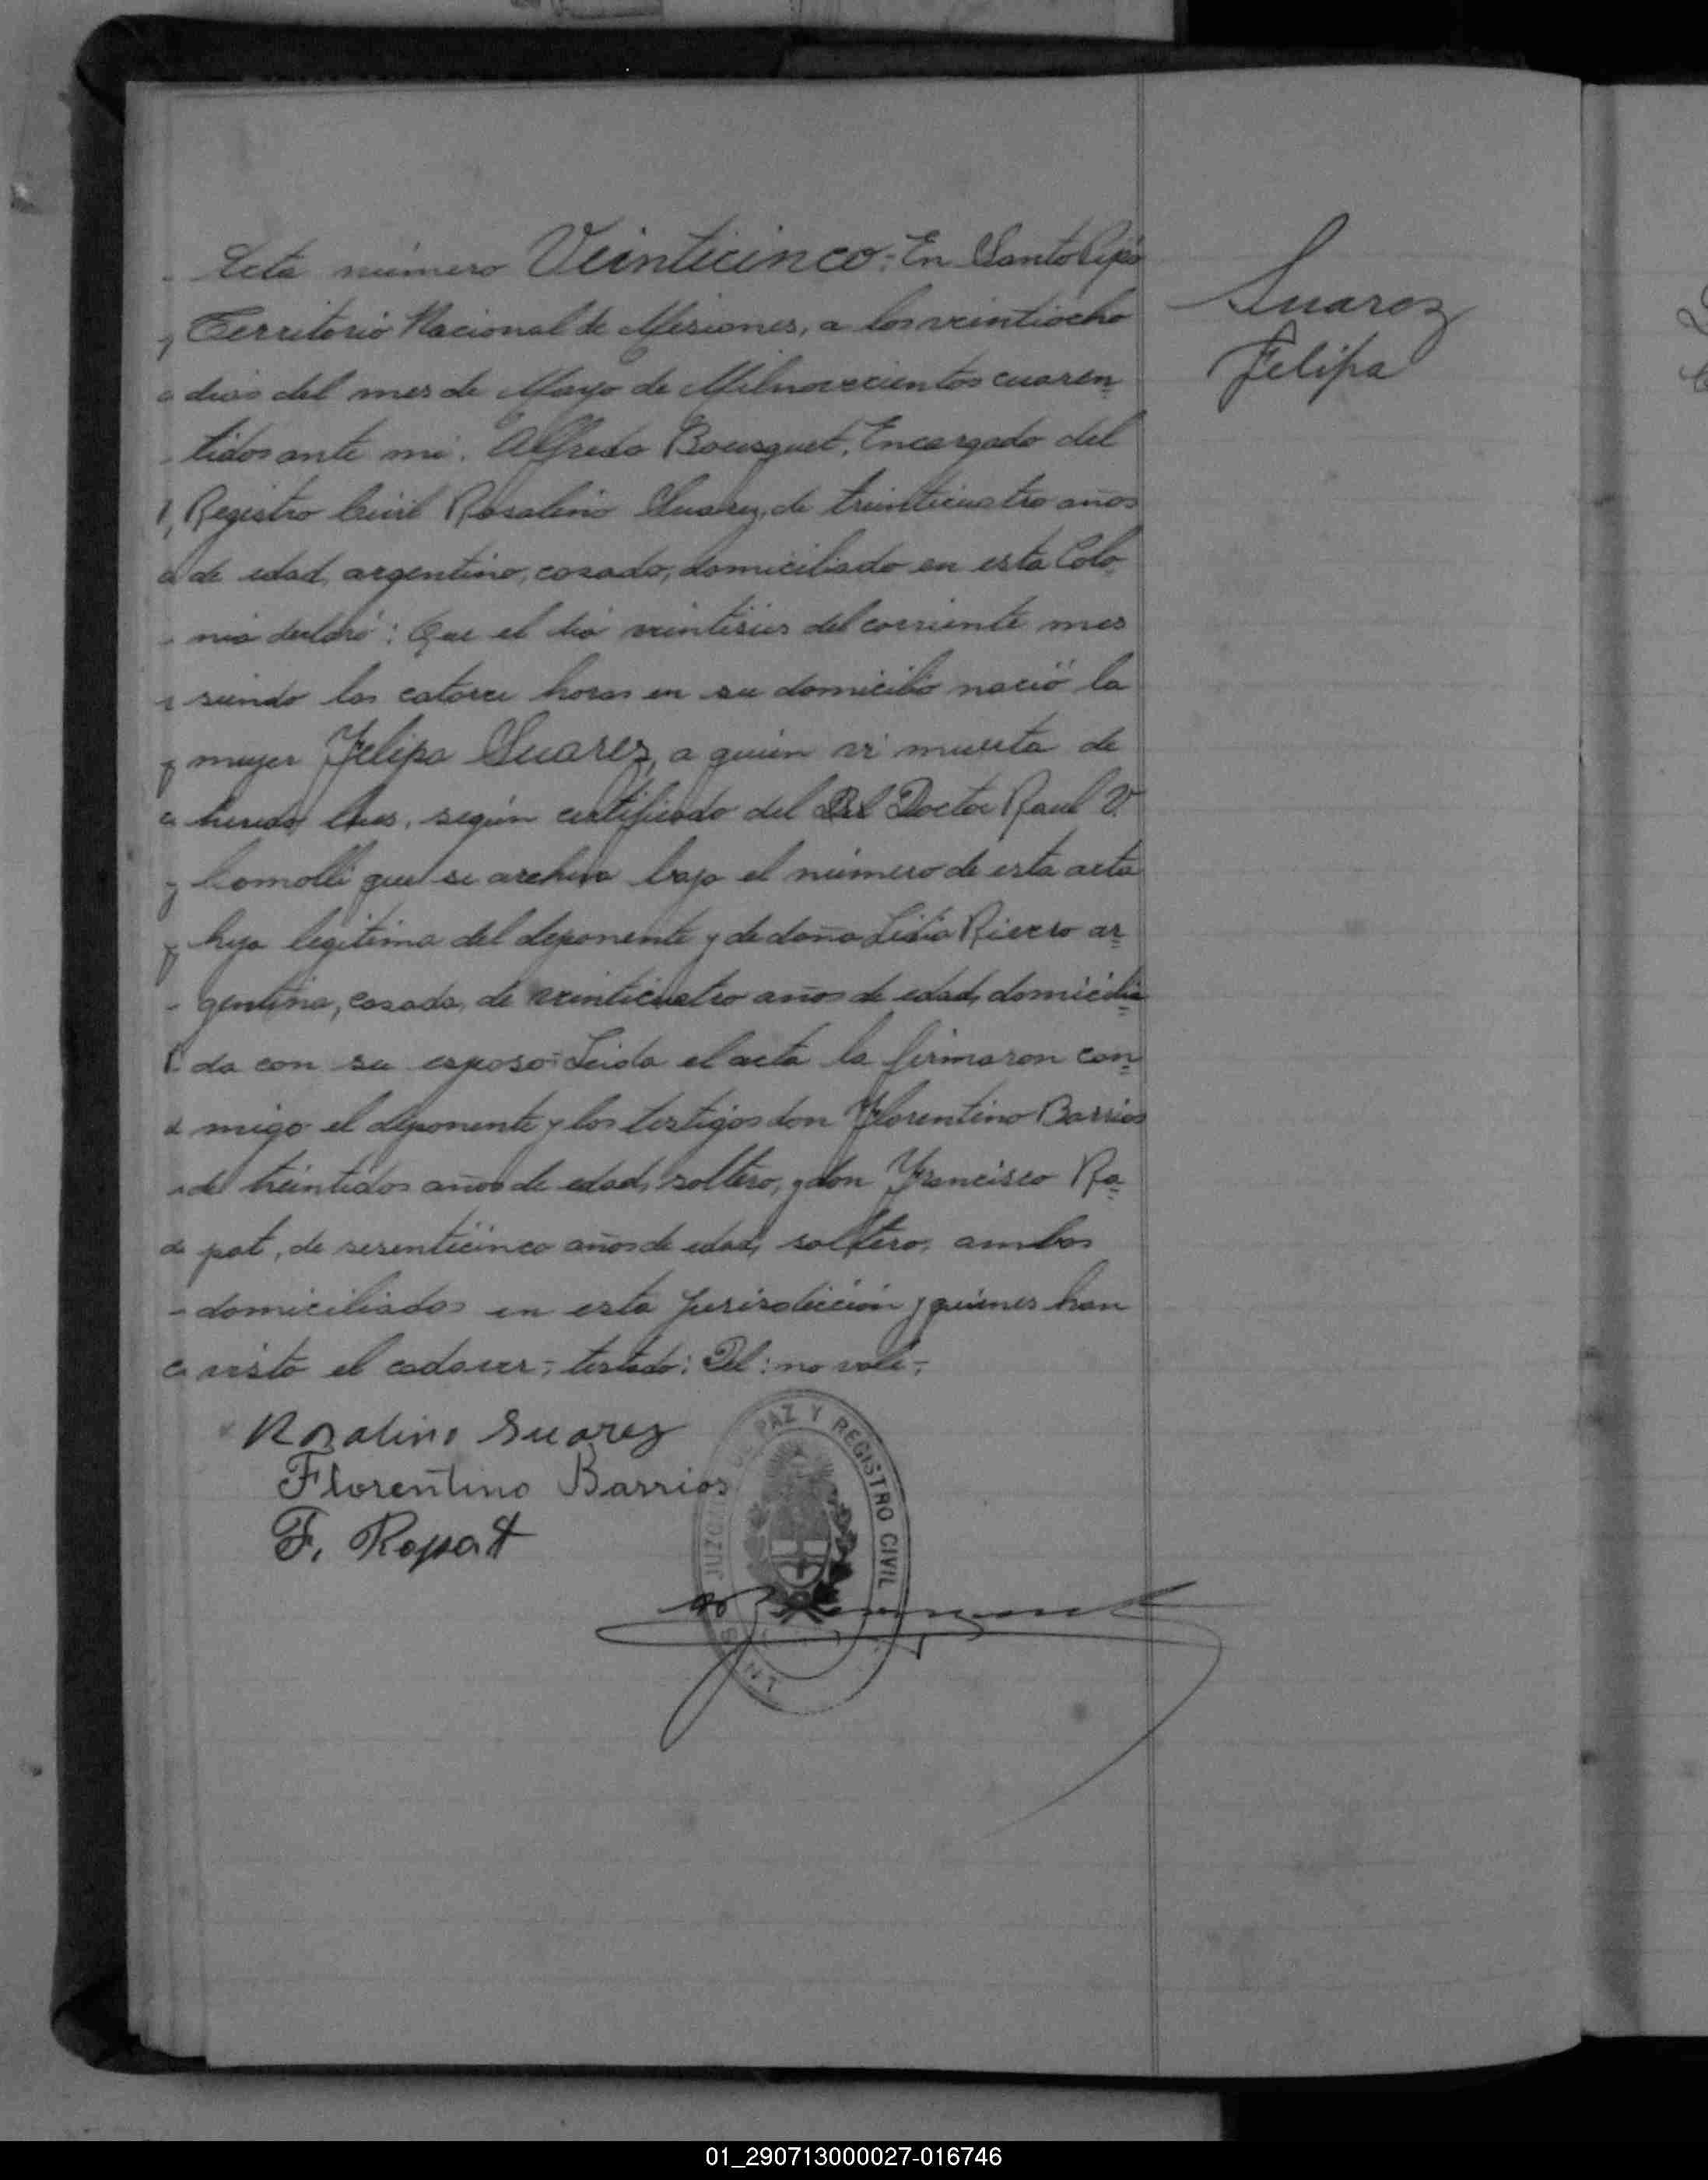 Acta número Veinticinco: En Santo Pipó
Territorio Nacional de Misiones, a los veintiocho
dias del mes de Mayo de Milnovecientos cuaren=
tidos ante mi. Alfredo Bousquet, Encargado del
Registro Civil Rosalino Suarez, de treinticuatro años
de edad, argentino, casado, domiciliado en esta Colo
nia declaró: Que el dia veintiseis del corriente mes
siendo las catorce horas en su domicilio nació la
mujer Felipa Suarez, a quien vi muerta de
lues, según certificado del Del Doctor Raul V.
Comolli que se archiva bajo el número de esta acta
hija legitima del deponente y de doña Lidia Rivero ar=
gentina, casada, de veinticuatro años de edad, domicilia=
da con su esposo: Leida el acta la firmaron con=
migo el deponente y los testigos don Florentino Barrios
de treintidos años de edad, soltero, y don Francisco Ra=
pat, de sesenticinco años de edad, soltero, ambos
domiciliados en esta jurisdicción y quienes han
visto el cadaver; testado: Del: no vale;
Suarez
Felipa
Rosalino Suarez
Florentino Barrios
F. Rapat
JUZG PAZ Y REGISTRO CIVIL
01_290713000027-016746